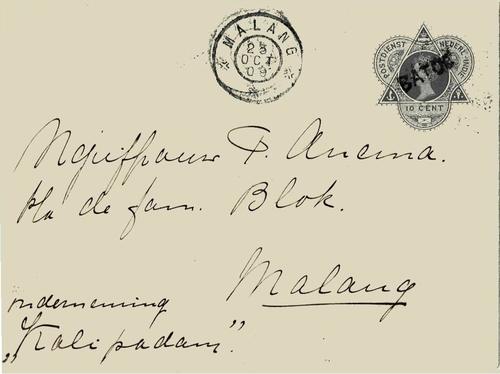 MALANG
25
OCT
09
POSTDIENST NEDERL-INDIE
BATOE
10 CENT
Mejuffrouw P. Anema.
p/a de fam. Blok.
Malang
onderneming
„Kali padam”.